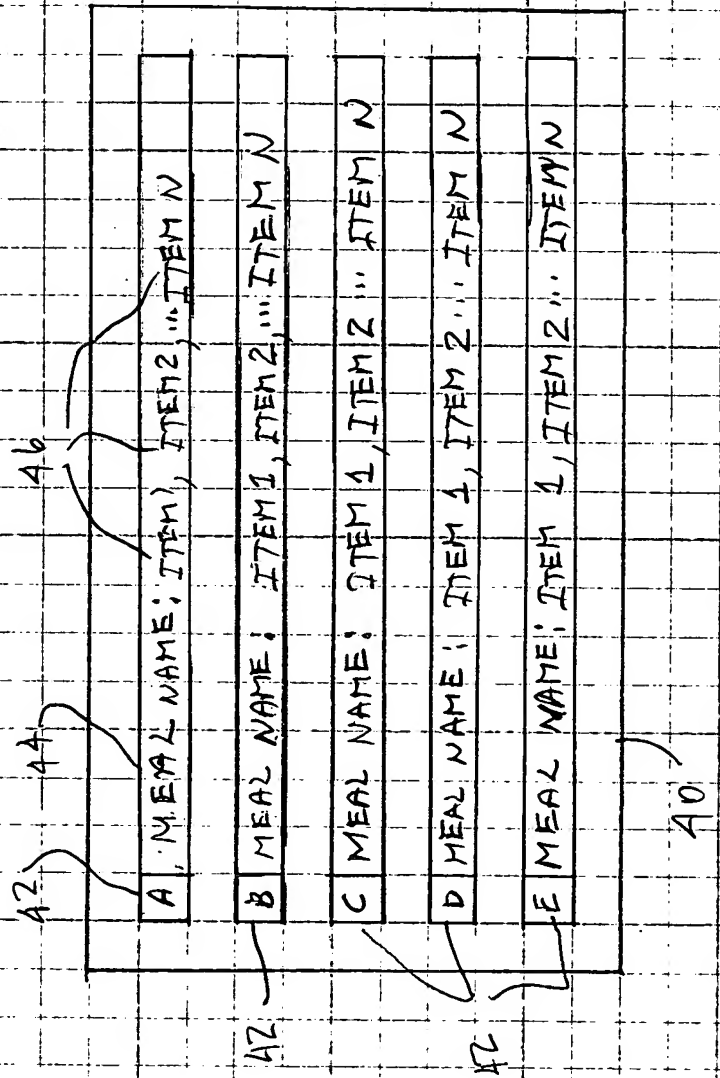 42 44 46
A MEAL NAME: ITEM 1, ITEM 2, ... ITEM N
B MEAL NAME: ITEM 1, ITEM 2, ... ITEM N
42
C MEAL NAME: ITEM 1, ITEM 2 ... ITEM N
D MEAL NAME: ITEM 1, ITEM 2 ... ITEM N
42
E MEAL NAME: ITEM 1, ITEM 2 ... ITEM N
40